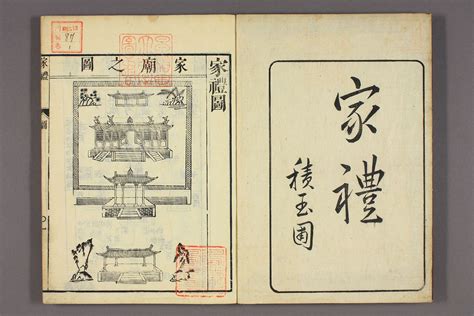 家禮
積玉圃
家禮圖
家廟之圖
家禮
圖